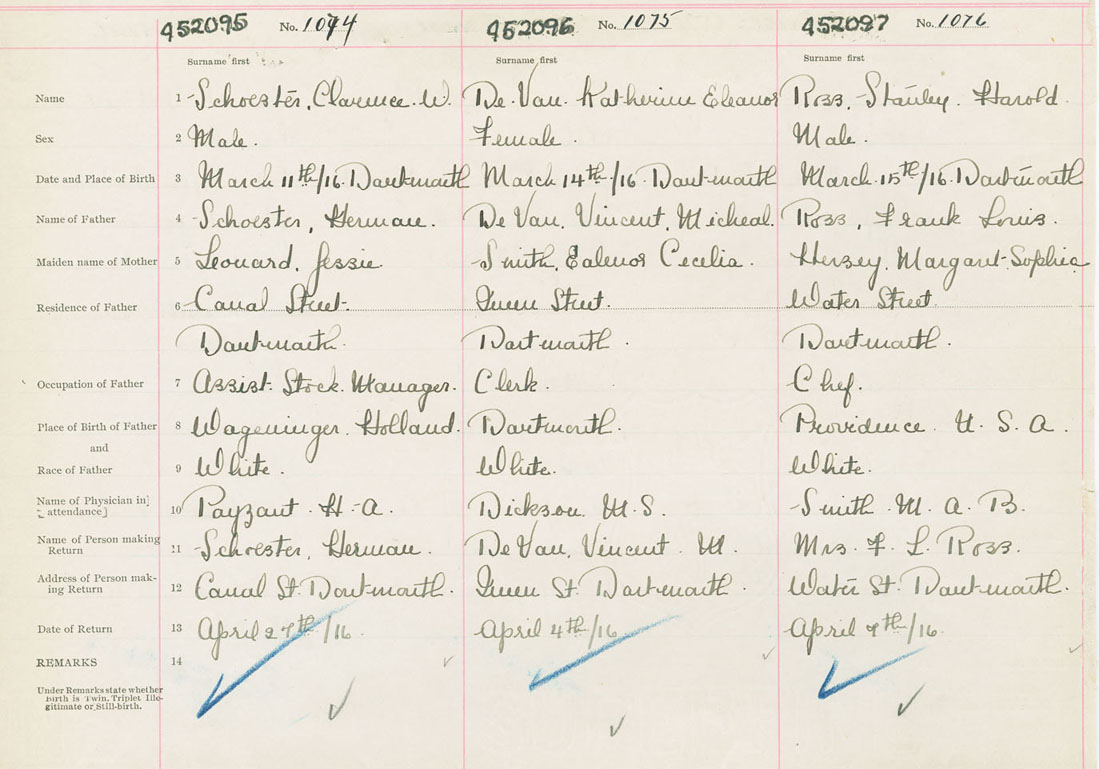 452095 No. 1074 452096 No. 1075 452097 No. 1076
Surname first Surname first Surname first
Name 1 Schoester, Clarence. W. De Van. Katherine Eleanor Ross, Stanley. Harold.
Sex 2 Male. Female. Male.
Date and Place of Birth 3 March 11th/16. Dartmouth March 14th/16. Dartmouth March. 15th/16. Dartmouth
Name of Father 4 Schoester, Herman. De Van, Vincent, Micheal. Ross, Frank Louis.
Maiden name of Mother 5 Leonard, Jessie. Smith, Ealenor Cecelia. Hersey, Margaret Sophia
Residence of Father 6 Canal Street. Queen Street. Water Street.
Dartmouth. Dartmouth. Dartmouth.
Occupation of Father 7 Assist. Stock. Manager. Clerk. Chef.
Place of Birth of Father 8 Wageninger, Holland. Dartmouth. Providence. U. S. A.
and
Race of Father 9 White. White. White.
Name of Physician in] attendance] 10 Payzant. H. A. Dickson. M. S. Smith. M. A. B.
Name of Person making Return 11 Schoester, Herman. De Van, Vincent. M. Mrs. F. L. Ross.
Address of Person mak-
ing Return 12 Canal St. Dartmouth. Queen St. Dartmouth. Water St. Dartmouth.
Date of Return 13 April 27th/16 April 4th/16 April 7th/16.
REMARKS 14
Under Remarks state whether
Birth is Twin, Triplet Ille-
gitimate or Still-birth.